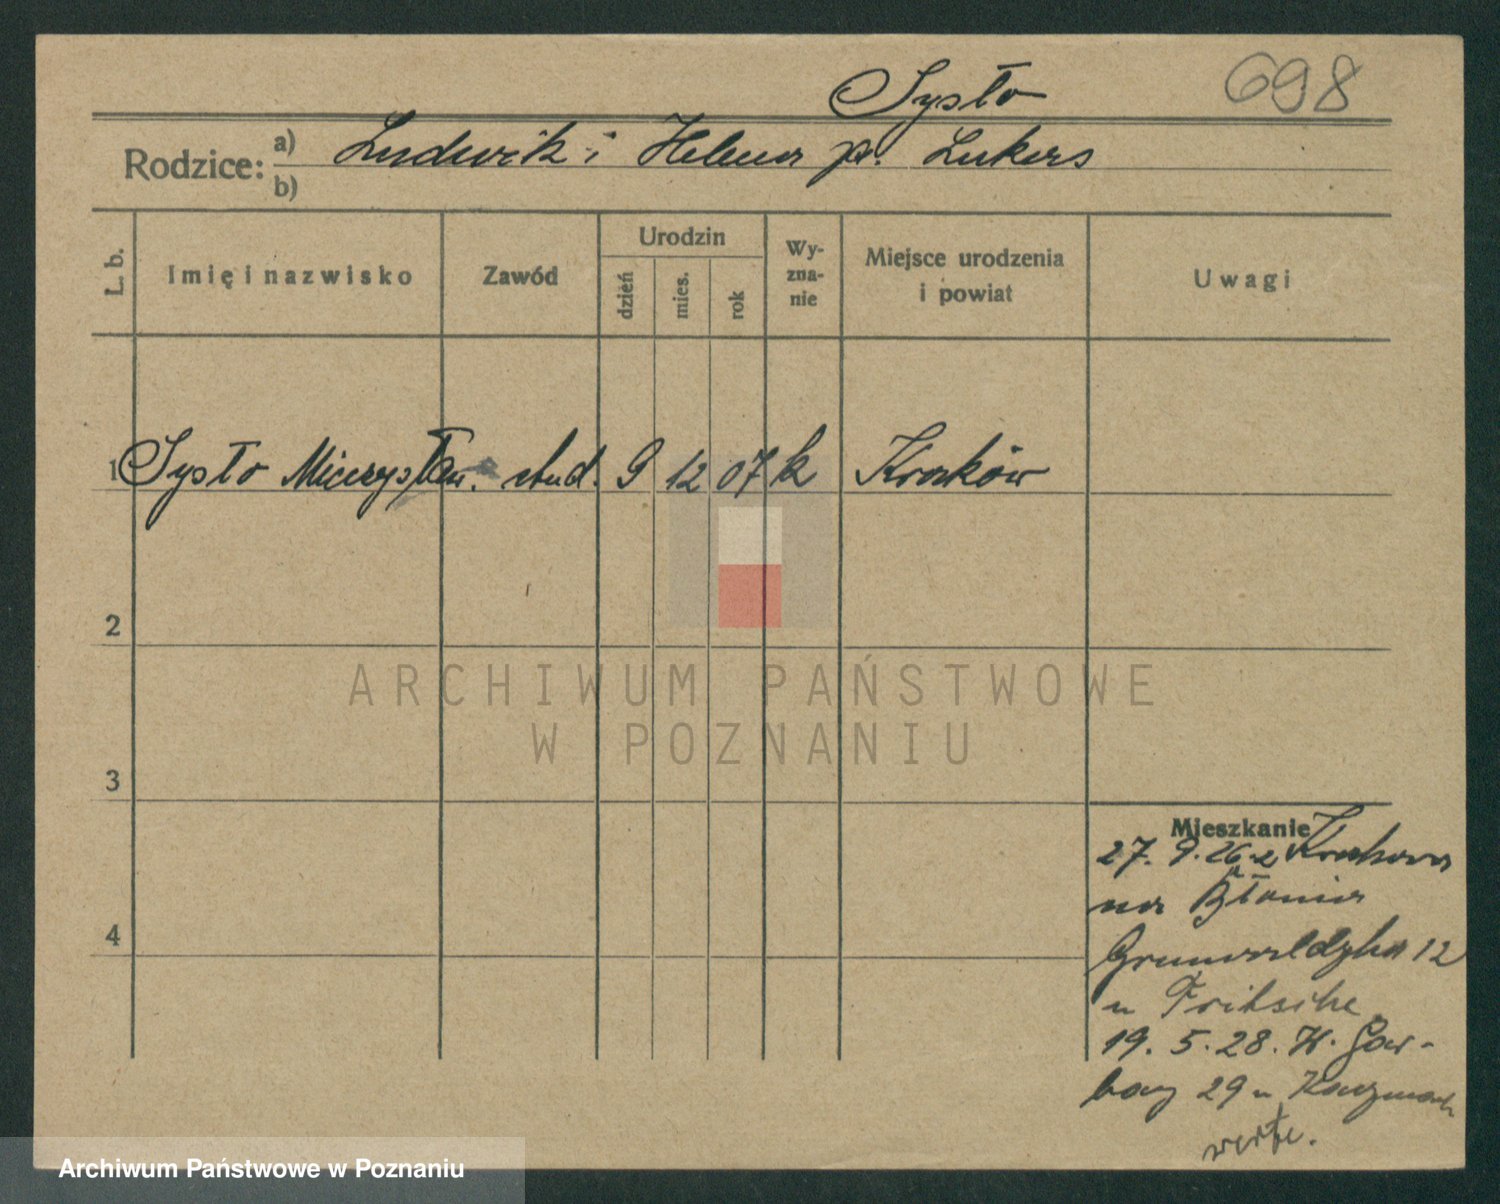 Sysło
698
Rodzice: a) Ludwik i Helena pr. Lukas
b)
L. b.
Imię i nazwisko
Zawód
Urodzin
dzień
mies.
rok
Wy-
zna-
nie
Miejsce urodzenia
i powiat
Uwagi
1 Sysło Mieczysław. stud. 9 12 07 k Kraków
2
3
4
Mieszkanie
27. 9. 26 z Krakowa
na Błonia
Grunwaldzka 12
u Fritsche
19. 5. 28. W. Gar-
bary 29 u Kaczmarek
verte.
ARCHIWUM PAŃSTWOWE
W POZNANIU
Archiwum Państwowe w Poznaniu